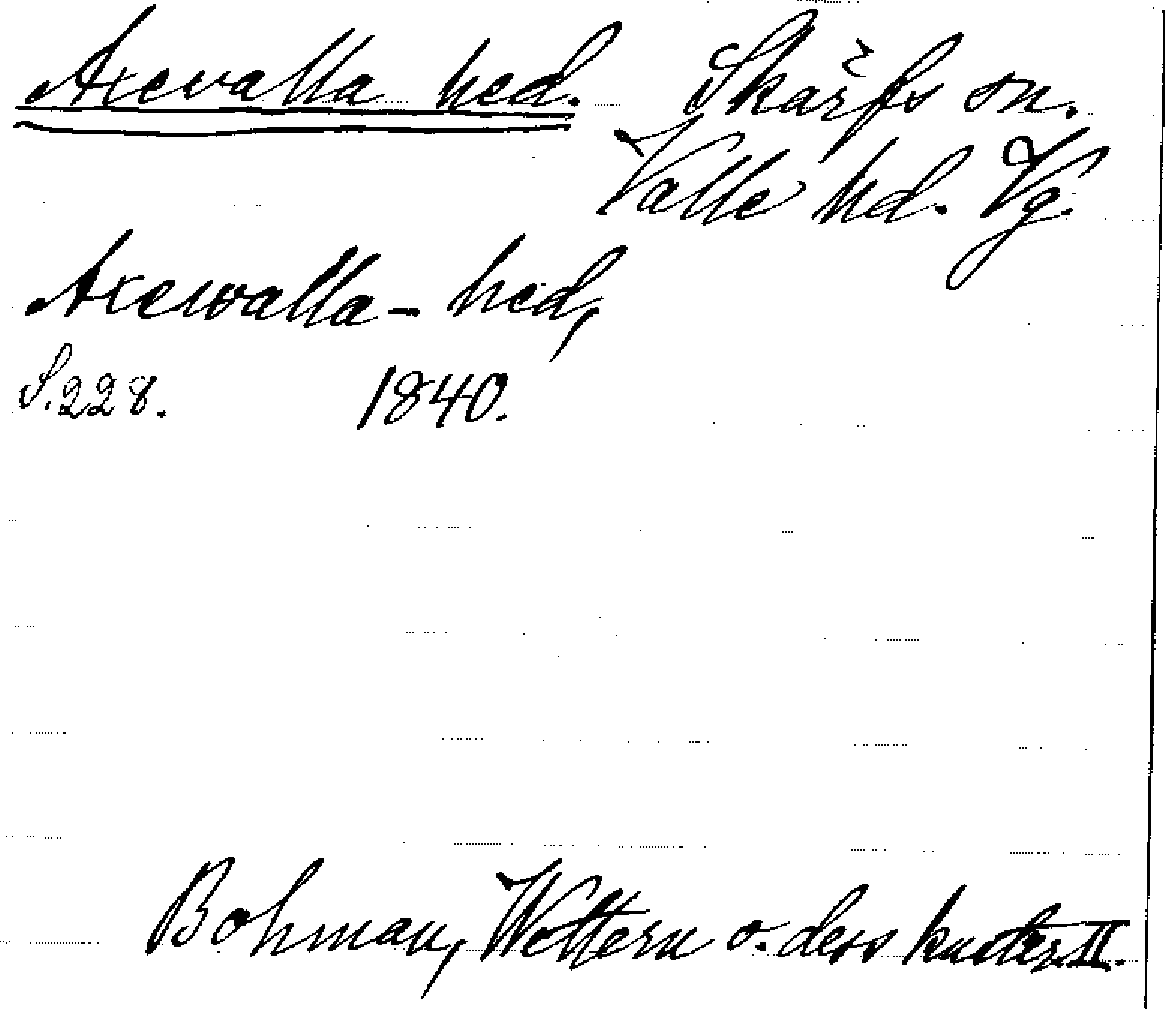 Axevalla hed. Skärfs sn.
Valle hd. Vg.
Axewalla-hed,
S. 228. 1840.
Bohman, Wettern o. dess kuster. II.